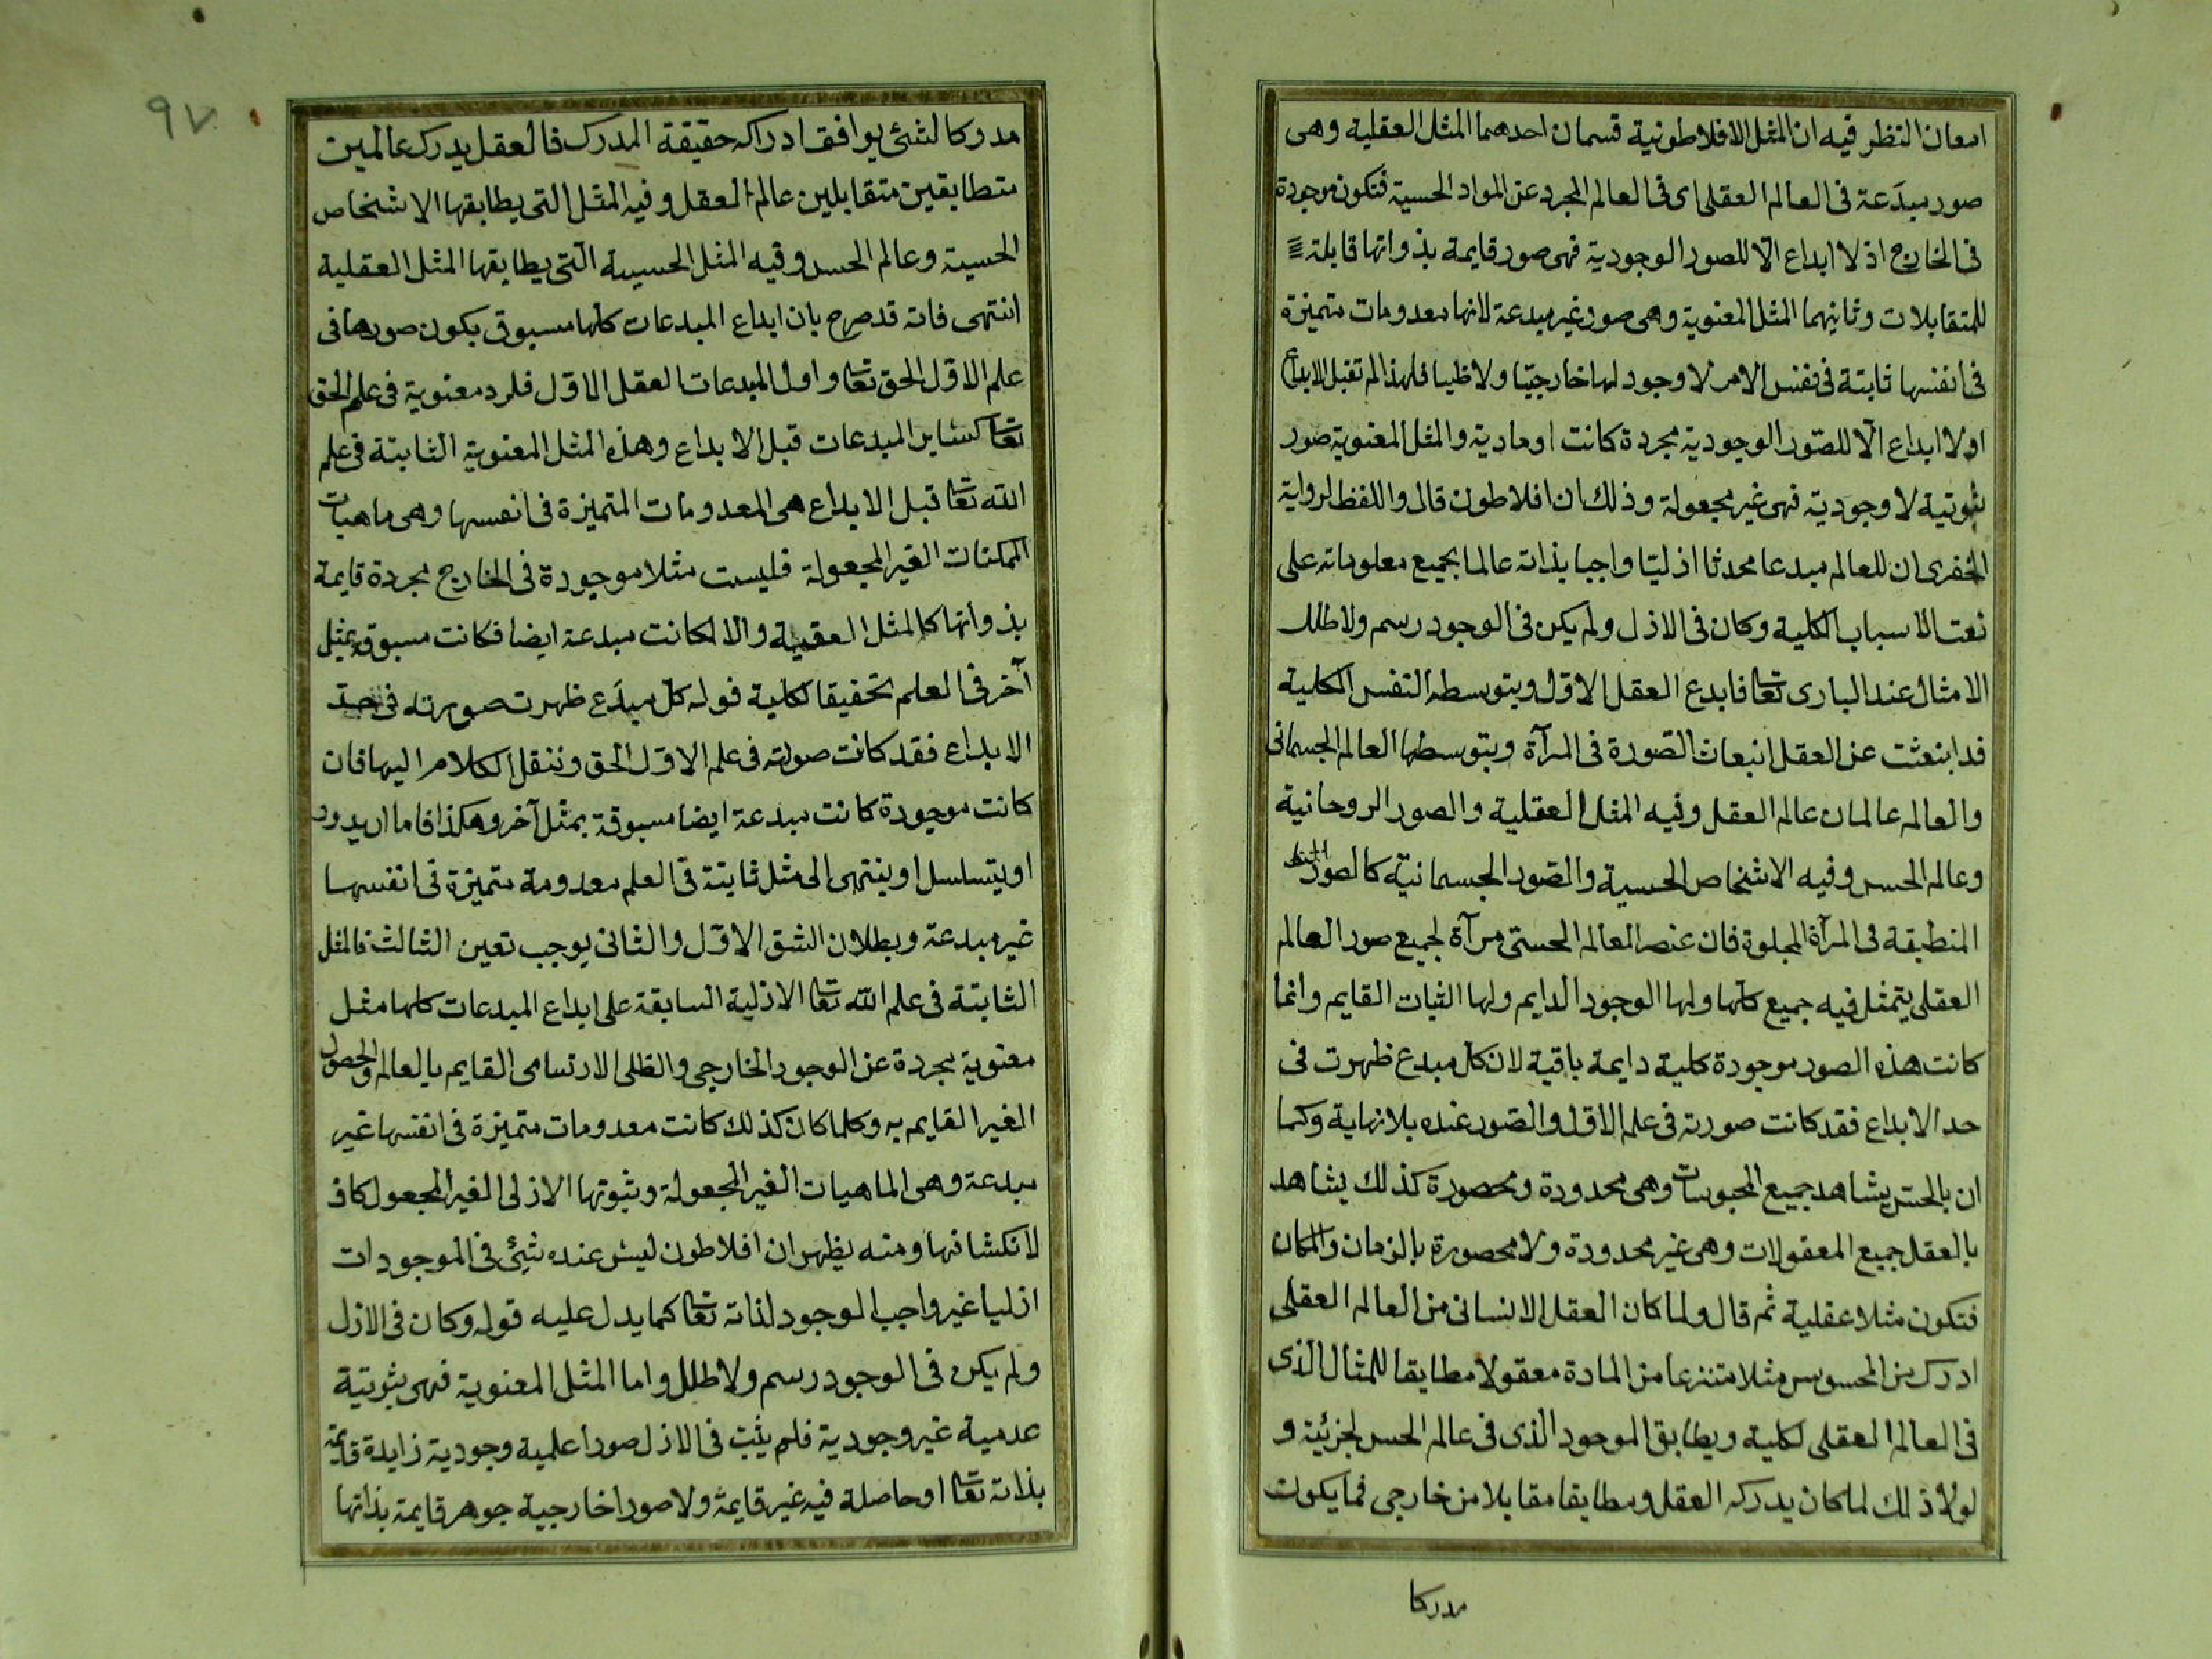 امعان النظر فيه ان المثل الافلاطونية قسمان احدهما المثل العقلية وهى
صور مبدَعة فى العالم العقلى اى فى العالم المجرد عن المواد الحسية فتكون موجودة
فى الخارج اذ لا ابداع الّا للصور الوجودية فهى صور قايمة بذواتها قابلة
للمتقابلات وثانيهما المثل المعنوية وهى صور غير مبدعة لانها معدومات متميزة
فى انفسها ثابتة فى نفس الامر لا وجود لها خارجيّا ولا ظليا فلهذا لم تقبل الابداع
اولا ابداع الّا للصّور الوجودية مجردة كانت او مادية والمثل المعنوية صور
ثبوتية لا وجودية فهى غير مجعولة وذلك ان افلاطون قال واللفظ لرواية
الخفرى ان للعالم مبدعا محدثا ازليّا واجبا بذاته عالما بجميع معلوماته على
نعت الاسباب الكلية وكان فى الازل ولم يكن فى الوجود رسم ولا طلل
الامثال عند البارى تعا فابدع العقل الاول وبتوسطه النفس الكلية
قد ابنعثت عن العقل انبعاث الصّورة فى المرآة وبتوسطها العالم الجسمانى
والعالم عالمان عالم العقل وفيه المثل العقلية والصور الروحانية
وعالم الحس وفيه الاشخاص الحسية والصّور الجسمانية كالصور
المنطبقة فى المرآة المجلوة فان عنصر العالم الحسّى مرآة لجميع صور العالم
العقلى يتمثل فيه جميع كلّها ولها الوجود الدايم ولها الثبات القايم وانما
كانت هذه الصور موجودة كلية دايمة باقية لان كل مبدع ظهرت فى
حد الابداع فقد كانت صورته فى علم الاول والصّور عنده بلا نهاية وكما
ان بالحسّ يشاهد جميع المحسوسات وهى محدودة ومحصورة كذلك يشاهد
بالعقل جميع المعقولات وهى غير محدودة ولا محصورة بالزمان والمكان
فتكون مثلا عقلية ثم قال ولما كان العقل الانسانى من العالم العقلى
ادرك من المحسوس مثلا متنزعا من المادة معقولا مطابقا للمثال الذى
فى العالم العقلى لكلية ويطابق الموجود الذى فى عالم الحس لجزئية و
لولا ذلك لما كان يدركه العقل ومطابقا مقابلا من خارجى فما يكون
مدركا
٩٧
مدركا لشئ يوافق ادراكه حقيقة المدرك فالعقل يدرك عالمين
متطابقين متقابلين عالم العقل وفيه المثل التى يطابقها الاشخاص
الحسية وعالم الحس وفيه المثل الحسية التى يطابقها المثل العقلية
انتهى فانه قد صرح بان ابداع المبدعات كلها مسبوق بكون صورها فى
علم الاوّل الحق تعا واول المبدعات العقل الاول فله رد معنوية فى علم الحق
تعا كساير المبدعات قبل الابداع وهذه المثل المعنوية الثابتة فى علم
الله تعا قبل الابداع هى المعدومات المتميزة فى انفسها وهى ماهيات
الممكنات الغير المجعولة فليست مثلا موجودة فى الخارج مجردة قايمة
بذواتها كالمثل العقلية والا لكانت مبدعة ايضا فكانت مسبوقة بمثل
آخر فى العلم تحقيقا لكلية قوله كل مبدَع ظهرت صورته فى حد
الابداع فقد كانت صورته فى علم الاوّل الحق وننقل الكلام اليها فان
كانت موجودة كانت مبدعة ايضا مسبوقة بمثل آخر وهكذا فاما ان يدور
او يتسلسل او ينتهى الى مثل ثابتة فى العلم معدومة متميزة فى انفسها
غير مبدعة وبطلان الشق الاوّل والثانى يوجب تعين الثالث فالمثل
الثابتة فى علم الله تعا الازلية السابقة على ابداع المبدعات كلها مثل
معنوية مجردة عن الوجود الخارجى والظلى الارتسامى القايم بالعالم والحصول
الغير القايم به وكلما كان كذلك كانت معدومات متميزة فى انفسها غير
مبدعة وهى الماهيات الغير المجعولة وثبوتها الازلى الغير المجعول كاف
لانكشافها ومنه يظهر ان افلاطون ليس عنده شئ فى الموجودات
ازليا غير واجب الوجود لذاته تعا كما يدل عليه قوله وكان فى الازل
ولم يكن فى الوجود رسم ولا طلل واما المثل المعنوية فهى ثبوتية
عدمية غير وجودية فلم يثبت فى الازل صورا علمية وجودية زايدة قايمة
بذاته تعا او حاصلة فيه غير قايمة ولا صورا خارجية جوهر قايمة بذاتها